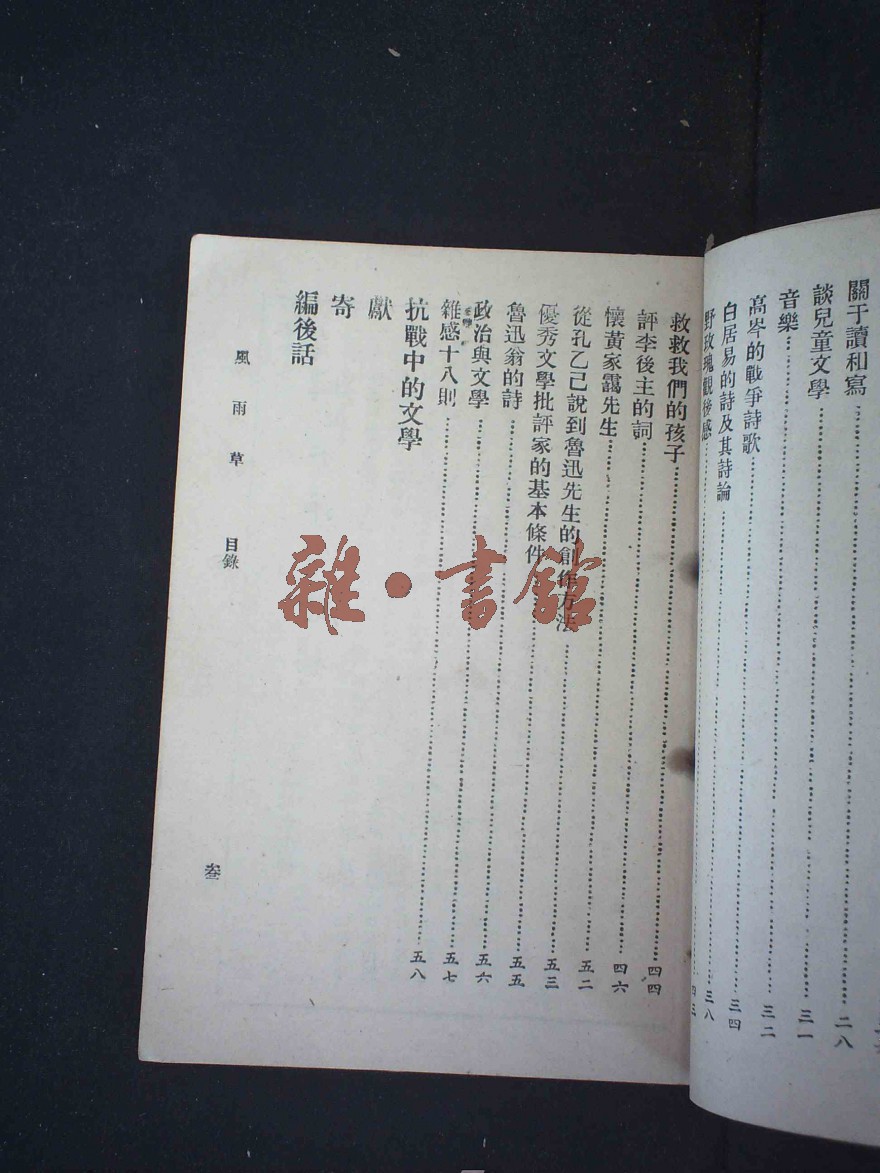 關于讀和寫……二八
談兒童文學……三一
音樂……三二
高岑的戰爭詩歌……三四
白居易的詩及其詩論……三八
野玫瑰觀後感……四三
救救我們的孩子……四四
評李後主的詞……四六
懷黃家靄先生……五二
從孔乙己說到魯迅先生的創作方法……五三
優秀文學批評家的基本條件……五五
魯迅翁的詩……五六
政治與文學……五七
雜感十八則……五八
抗戰中的文學
獻
寄
編後話
風雨草 目錄 叁
雜·書館